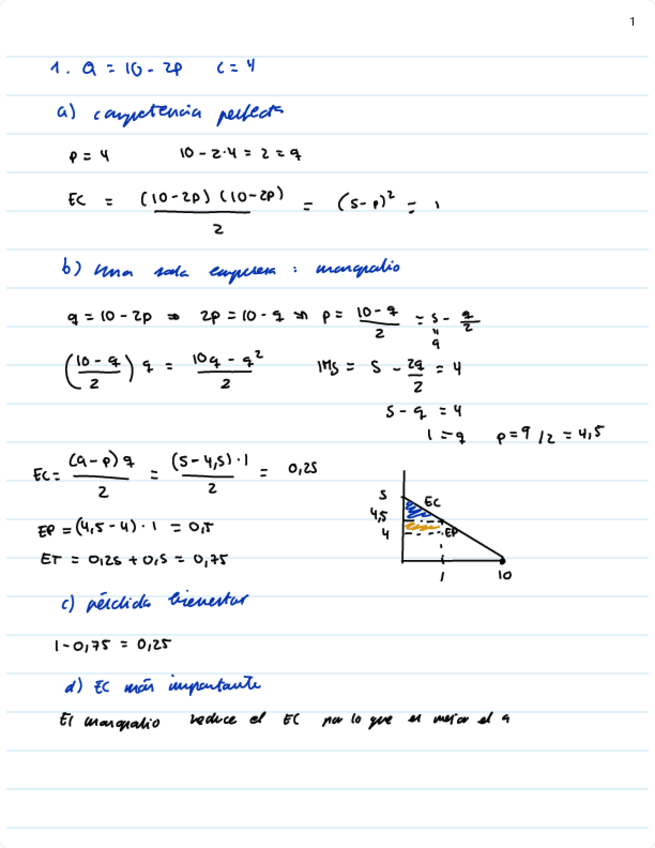 1
1. Q = 10 - 2p   C = 4
a) competencia perfecta
p = 4   10 - 2·4 = 2 = q
EC = (10-2p)(10-2p) / 2 = (5-p)² = 1
b) Una sola empresa : monopolio
q = 10 - 2p ⇒ 2p = 10 - q ⇒ p = (10 - q) / 2 = 5 - q/2
"
a
((10 - q) / 2) q = (10q - q²) / 2   IMg = 5 - 2q/2 = 4
5 - q = 4
1 = q   p = 9/2 = 4,5
EC = (a-p)q / 2 = (5-4,5)·1 / 2 = 0,25
EP = (4,5 - 4)·1 = 0,5
ET = 0,25 + 0,5 = 0,75
5
EC
4,5
4
EP
1
10
c) pérdida bienestar
1 - 0,75 = 0,25
d) EC más importante
El monopolio reduce el EC por lo que es mejor el a